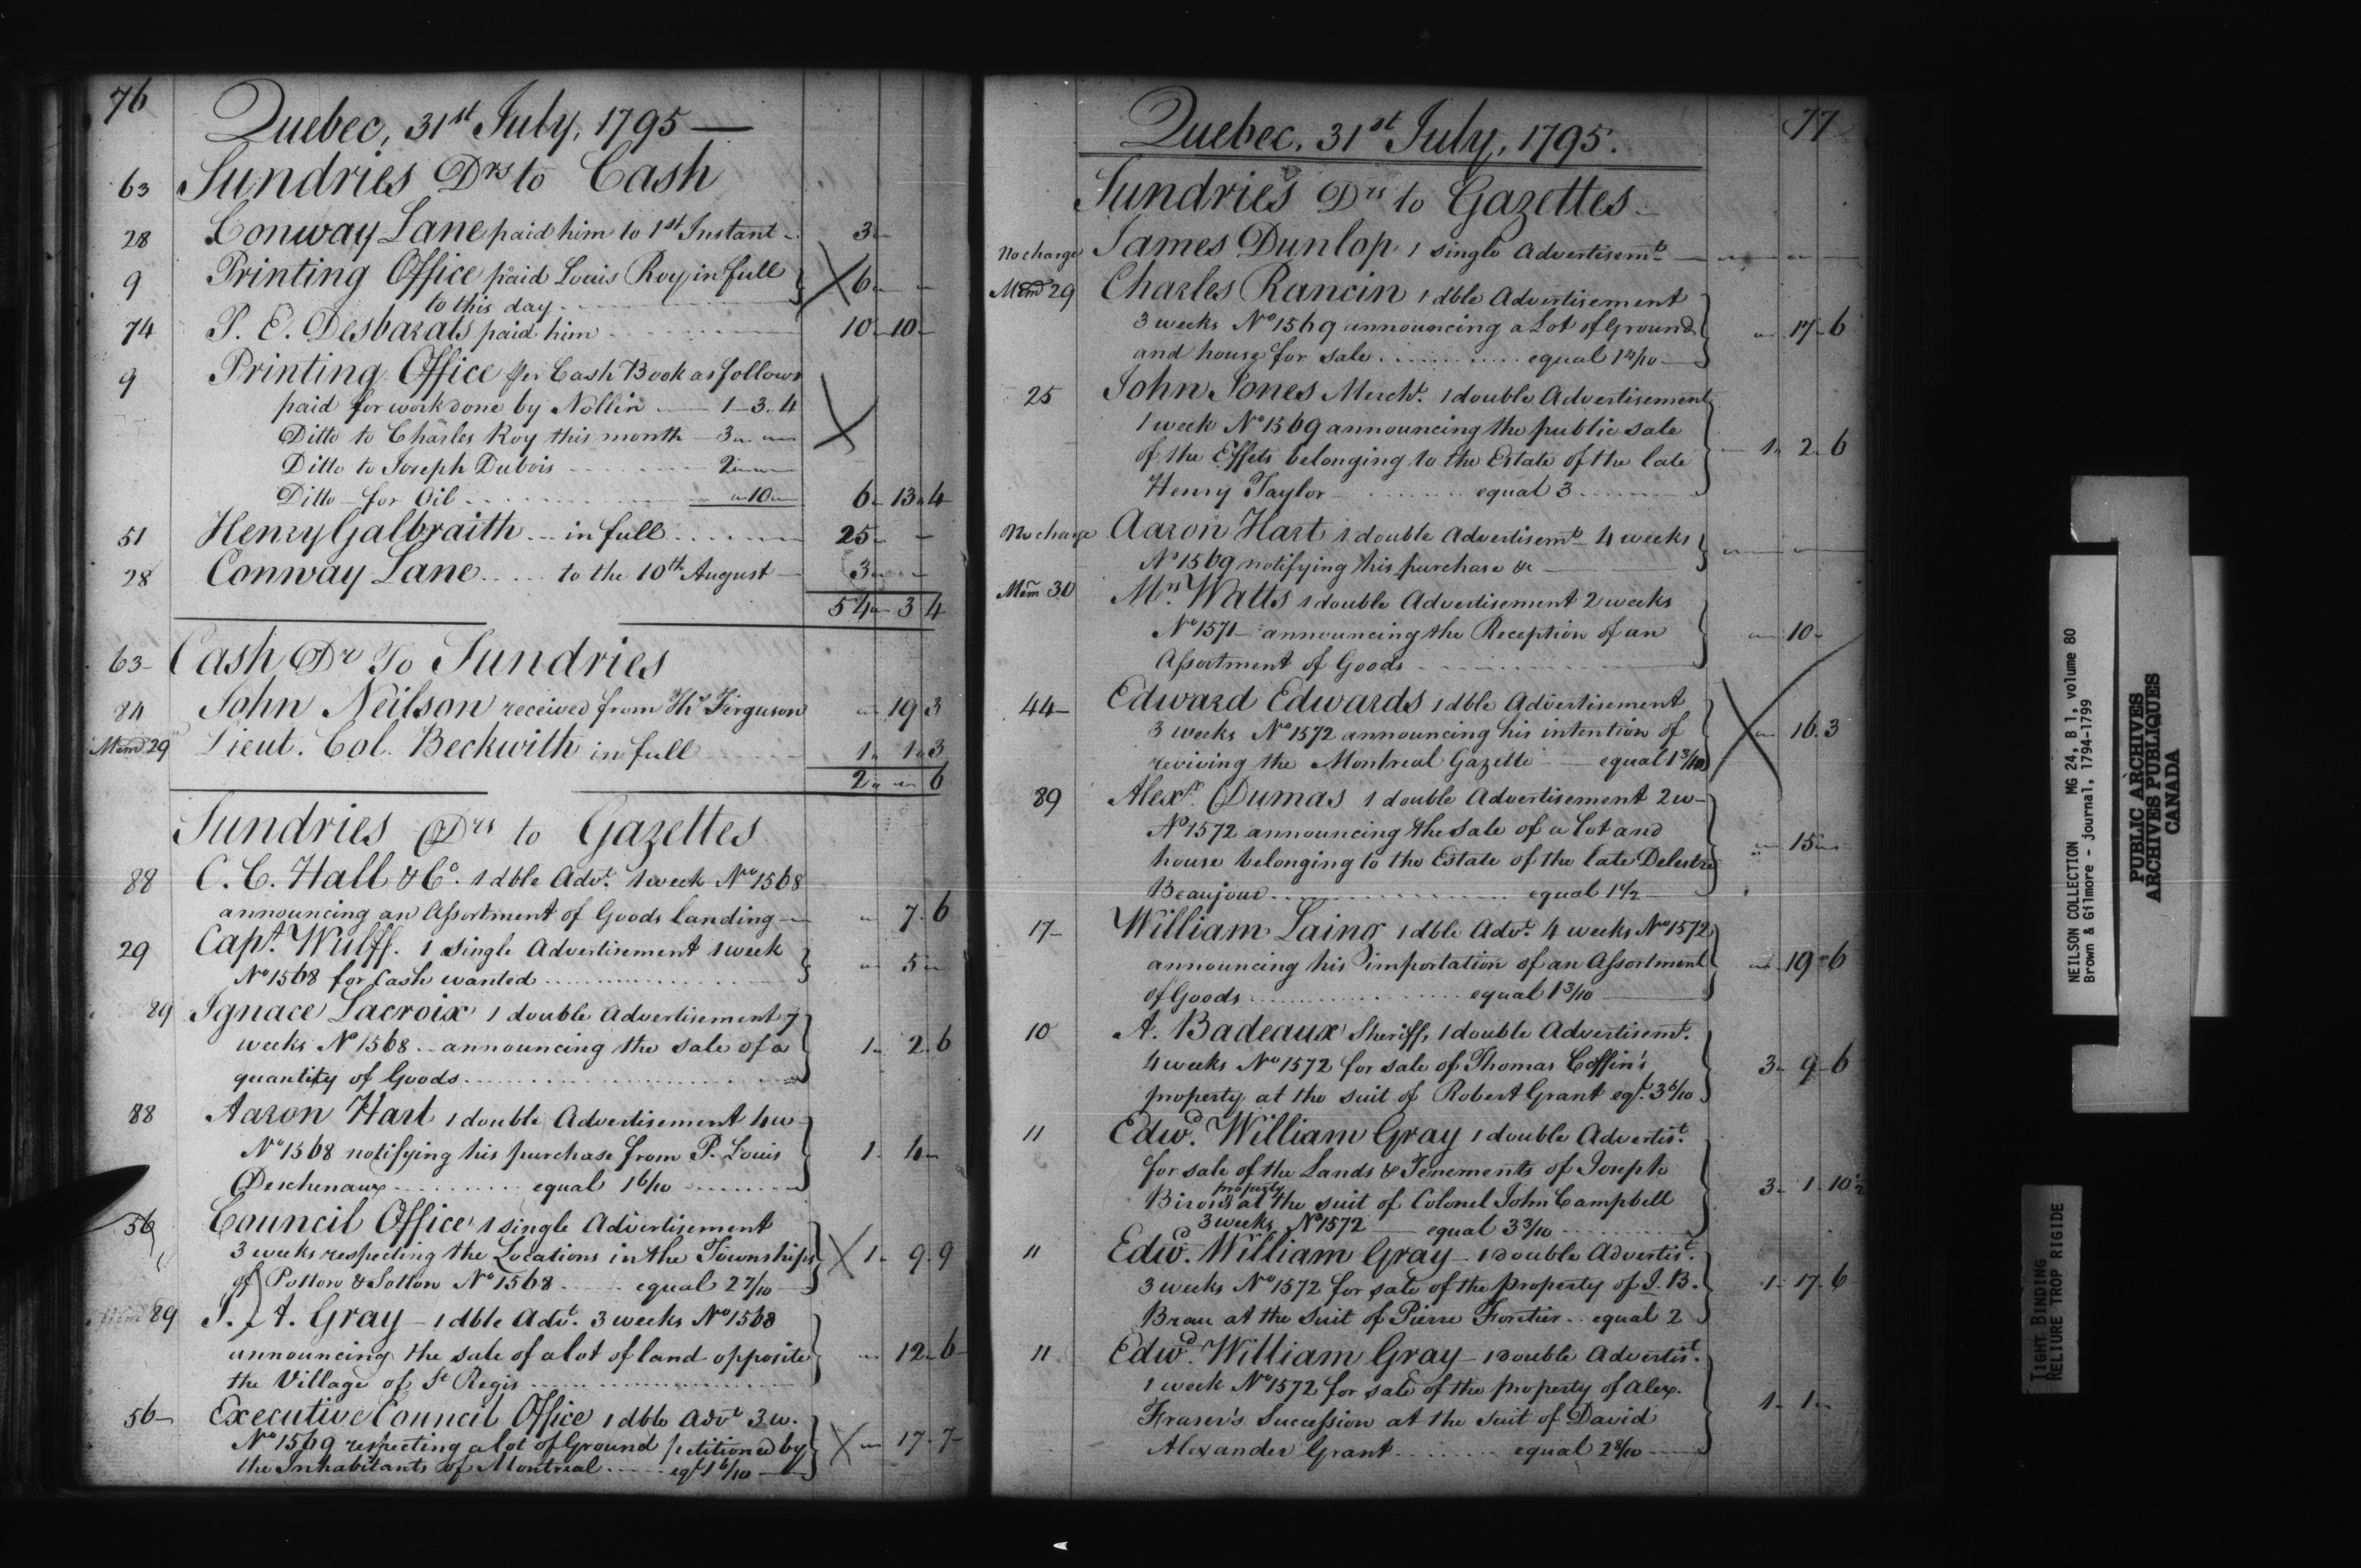 76
Quebec, 31st July, 1795 —
63 Sundries Drs to Cash
28 Conway Lane paid him to 1st Instant - 3 "
9 Printing Office paid Louis Roy in full 6 " "
to this day
74 P. E. Desbarats paid him 10 " 10 "
9 Printing Office per Cash Book as follows
paid for work done by Nollin — 1 - 3 " 4
Ditto to Charles Roy this month - 3 " "
Ditto to Joseph Dubois 2 " "
Ditto - for Oil " 10 " 6 " 13 " 4
51 Henry Galbraith - in full 25 " -
28 Conway Lane to the 10th August - 3 " -
54 " 3 4
63 - Cash Dr To Sundries
84 John Neilson received from Ths Ferguson " 19 3
Mem 29 Lieut. Col. Beckwith in full 1 " 1 " 3
2 " " 6
Sundries Drs to Gazettes
88 C. C. Hall & Co. 1 dble Advt. 1 week No 1568
announcing an Assortment of Goods landing — " 7 " 6
29 Capt. Wulff. 1 single Advertisement 1 week " 5 "
No 1568 for Cash wanted
89 Ignace Lacroix 1 double Advertisement 7
weeks No 1568 - announcing the sale of a 1 " 2 " 6
quantity of Goods
88 Aaron Hart 1 double Advertisement 4 w -
No 1568 notifying his purchase from P. Louis 1 - 4 -
Deschenaux equal 1 6/10
56 Council Office 1 single Advertisement
3 weeks respecting the Locations in the Townships 1 - 9 " 9
of Potton & Sotton No 1568 equal 2 7/10
89 J. A. Gray - 1 dble Advt. 3 weeks No 1568
announcing the sale of a lot of land opposite " 12 " 6
the Village of St Regis
56 - Executive Council Office 1 dble Advt 3 w.
No 1569 respecting a lot of Ground petitioned by " 17 - 7
the Inhabitants of Montreal eql 1 6/10
77
Quebec, 31st July, 1795.
Sundries Drs to Gazettes -
No charge James Dunlop 1 single Advertisemt — " "
Mem 29 Charles Rancin 1 dble Advertisement
3 weeks No 1569 announcing a Lot of Ground " 17 - 6
and house for sale equal 1 4/10
25 John Jones Mercht. 1 double Advertisement
1 week No 1569 announcing the public sale
of the Effets belonging to the Estate of the late 1 " 2 " 6
Henry Taylor equal 3
No charge Aaron Hart 1 double Advertisemt 4 weeks " "
No 1569 notifying his purchase &c —
Mem 30 Mrs Watts 1 double Advertisement 2 weeks
No 1571 - announcing the Reception of an " 10 "
Assortment of Goods
44 - Edward Edwards 1 dble Advertisement
3 weeks No 1572 announcing his intention of " 16 " 3
reviving the Montreal Gazette — equal 1 3/10
89 Alexr. Dumas 1 double Advertisement 2 w -
No 1572 announcing the sale of a lot and
house belonging to the Estate of the late Delestre " 15 "
Beaujour equal 1 1/2
17 - William Laing 1 dble Advt. 4 weeks No 1572
announcing his importation of an Assortment " 19 " 6
of Goods equal 1 3/10
10 A. Badeaux Sheriff, 1 double Advertisemt.
4 weeks No 1572 for sale of Thomas Coffin's 3 - 9 - 6
property at the suit of Robert Grant eql. 3 6/10
11 Edwd. William Gray 1 double Advertist.
for sale of the Lands & Tenements of Joseph
property
Biron's at the suit of Colonel John Campbell 3 - 1 - 10 1/2
3 weeks No 1572 — equal 3 3/10
11 Edwd. William Gray - 1 Double Advertist.
3 weeks No 1572 for sale of the property of J. B. 1 - 17 - 6
Brau at the Suit of Pierre Foretier - equal 2
11 Edwd. William Gray - 1 Double Advertist.
1 week No 1572 for sale of the property of Alex.
Fraser's Succession at the Suit of David 1 - 1 "
Alexander Grant equal 2 8/10
NEILSON COLLECTION MG 24, B 1, volume 80
Brown & Gilmore - journal, 1794-1799
PUBLIC ARCHIVES
ARCHIVES PUBLIQUES
CANADA
TIGHT BINDING
RELIURE TROP RIGIDE